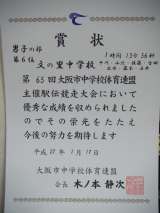 賞状
男子の部
第6位
1時間13分36秒
文の里中学校
第65回大阪市中学校体育連盟
主催駅伝競走大会において
優秀な成績を収められました
のでその栄光をたたえ
今後の努力を期待します
大阪市中学校体育連盟
会長 木ノ本静次